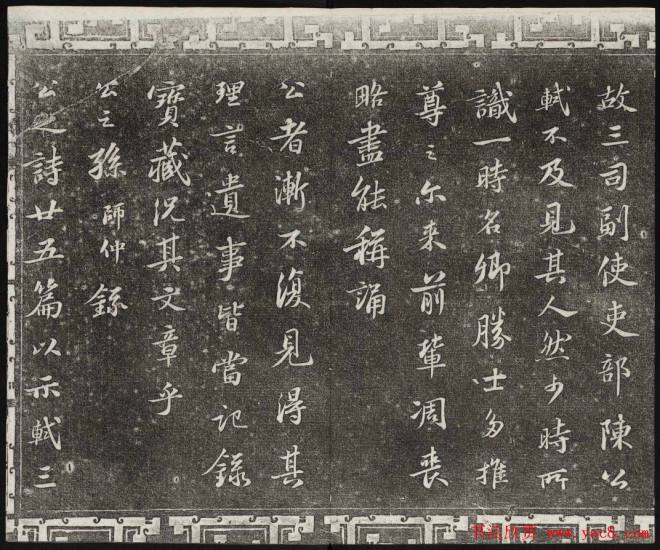 故三司副使吏部陳公
軾不及見其人然少時所
識一時名卿勝士多推
尊之尒来前輩凋喪
略盡能稱誦
公者漸不復見得其
理言遺事皆當記録
寶藏況其文章乎
公之孫師仲録
公之詩廿五篇以示軾三
书法欣赏 www.yac8.com